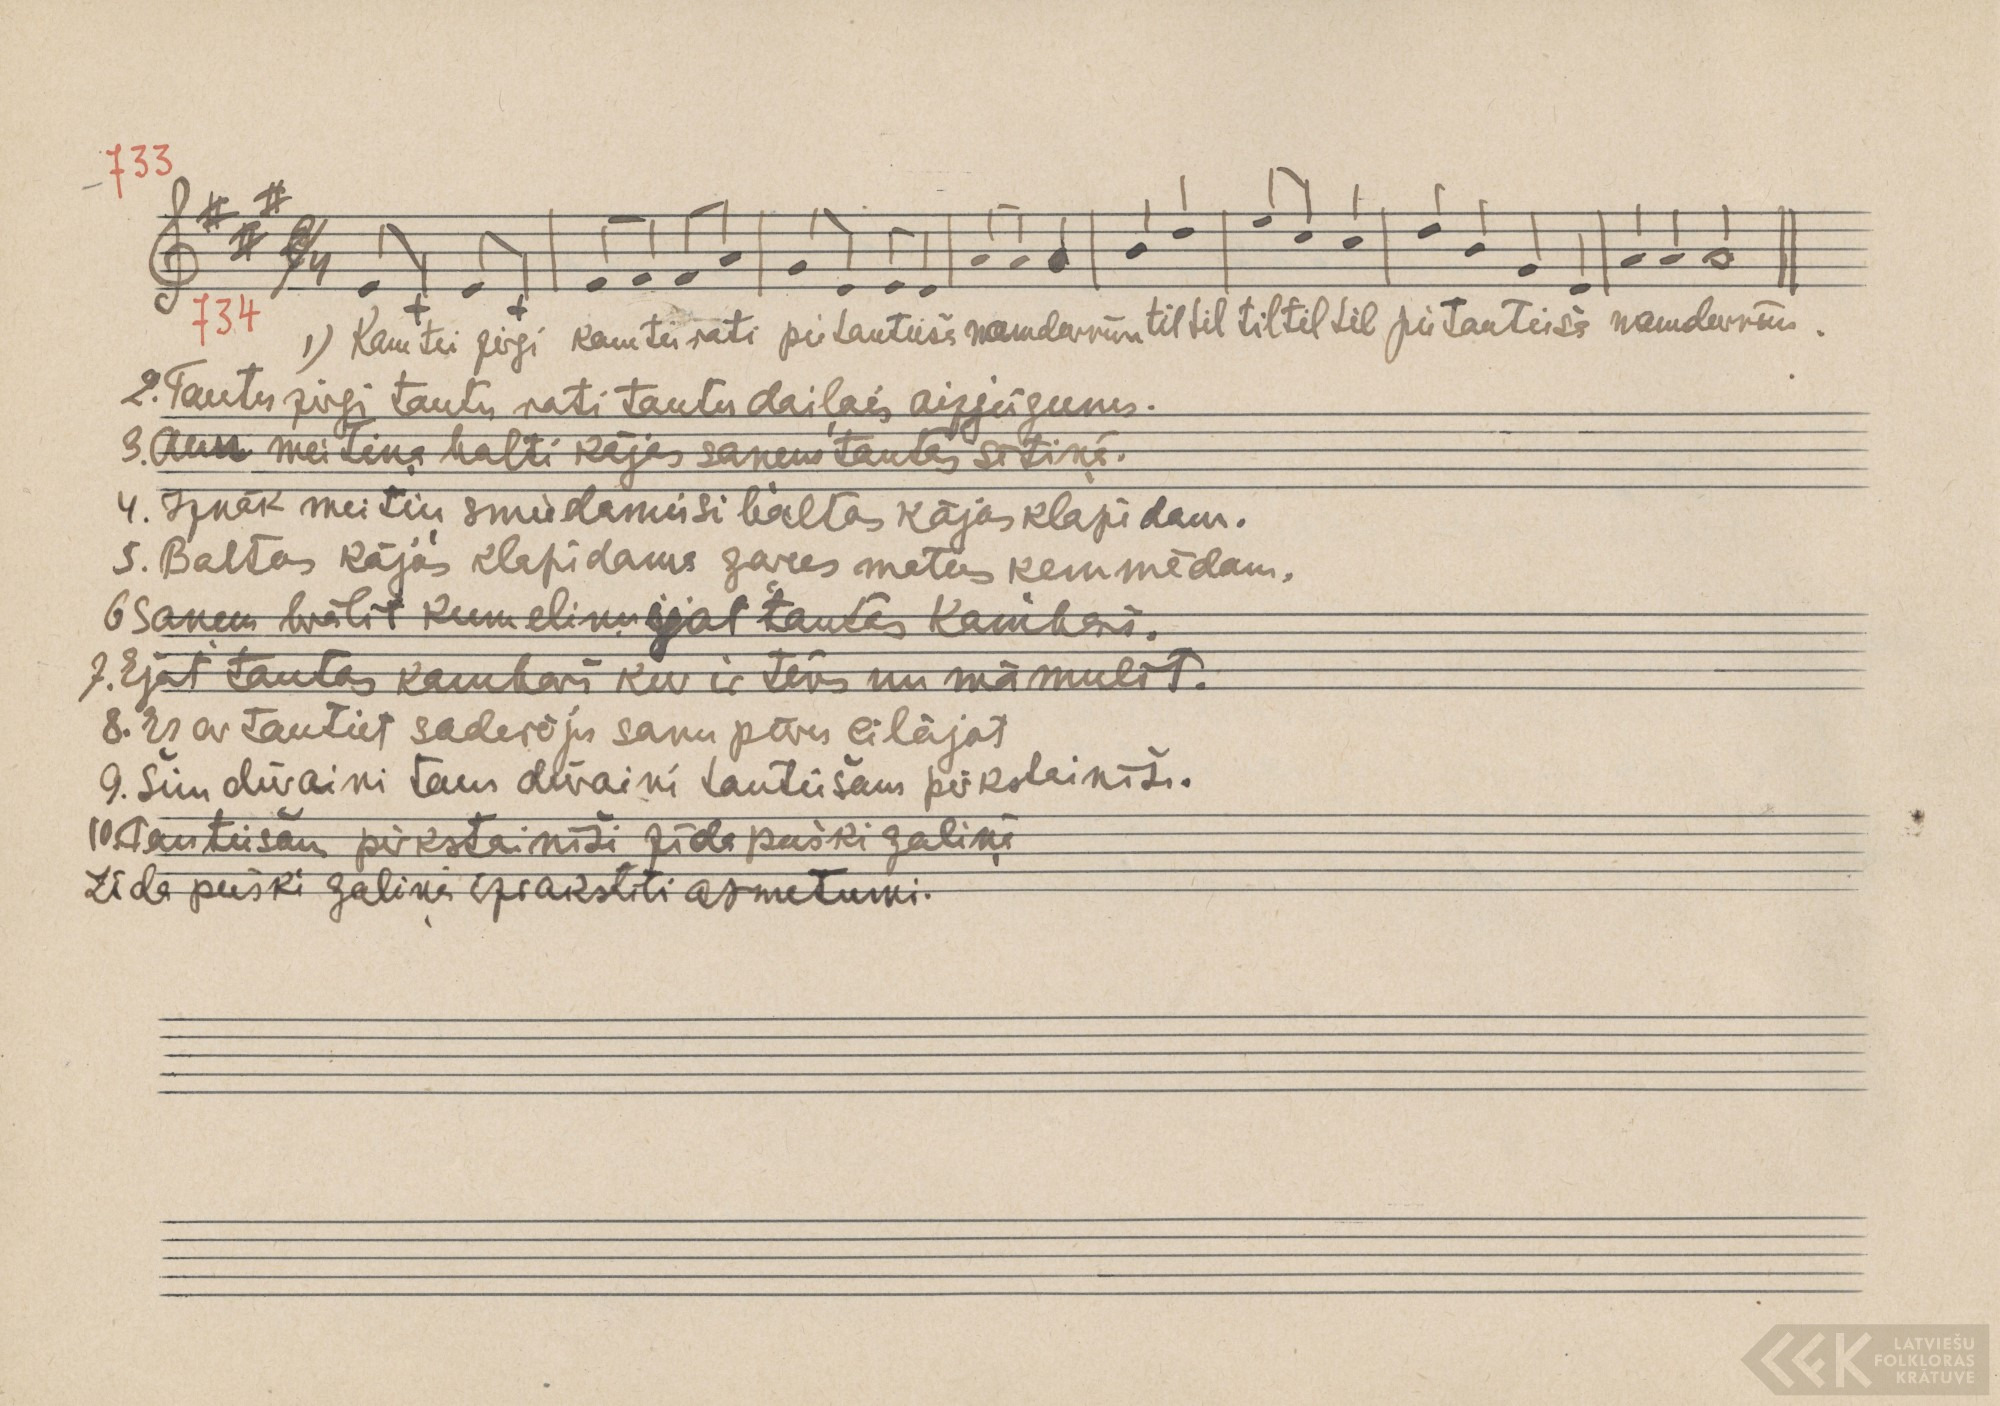 733
2/4
734
1) Kam tei zirgi kam tei rati pie tautieša namdurrům til til til til til pie tautieša namdurrům.
2. Tautu zirgi tautu rati tautu daiļais aizjúgums.
3. Aun meitiņa balti kājas saņem tautas sētiņā.
4. Iznāk meitiņ smiedamiesi baltas kājas klapēdam.
5. Baltas kājas klapēdama garus matus kemmēdam.
6 Saņem brālīt kumeliņu ejat tautas kambarī.
7. Ejat tautas kambarī kur ir tēvs un māmulīt.
8. Es ar tautiet saderēju sanu pāru cilājat
9. Šim dūraini tam dūraiņi tautiešam pirkstainīši.
10. Tautiešam pirkstainīši zīda puški galiņā
Zīda puški galiņā izrakstīti asmetumi.
LFK
LATVIEŠU
FOLKLORAS
KRĀTUVE